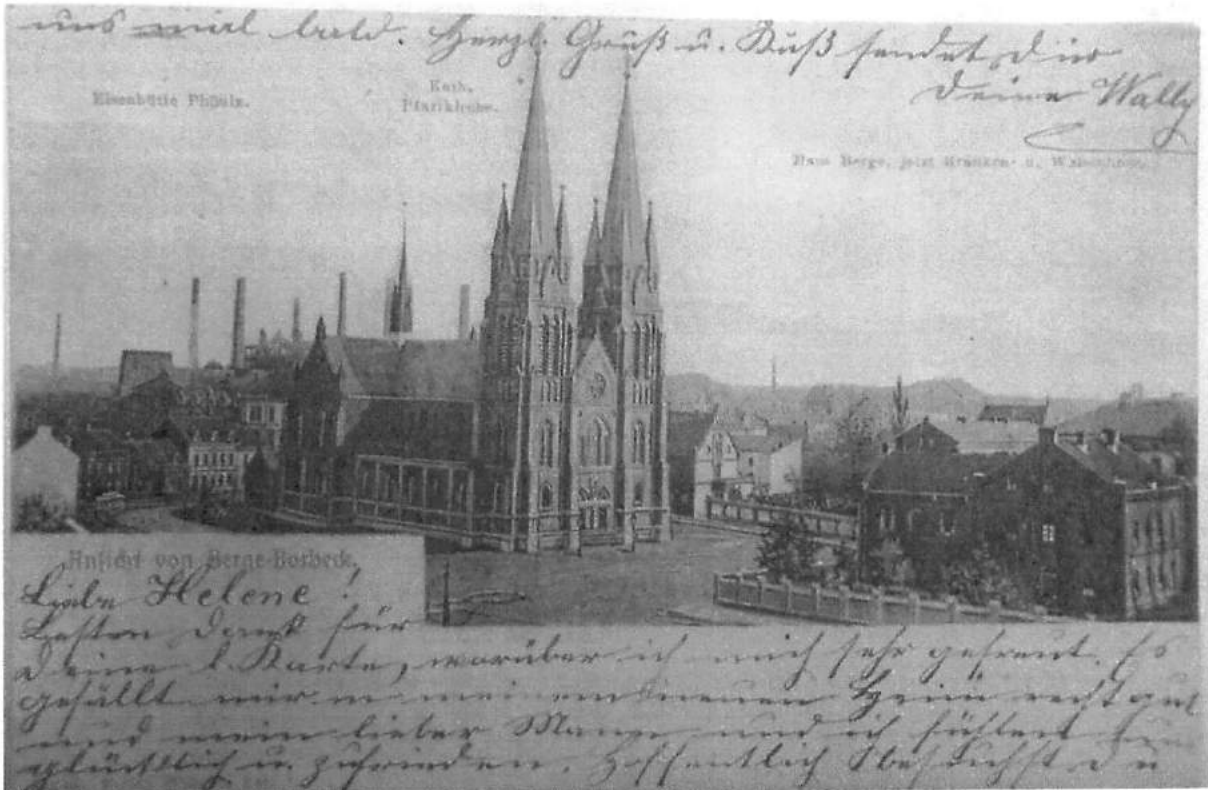 uns mal bald. Herzl. Gruß u. Kuß sendet dir
Deine Wally
Eisenhütte Phönix.
Kath.
Pfarrkirche.
Haus Berge, jetzt Kranken- u. Waisenhaus.
Ansicht von Berge-Borbeck.
Liebe Helene!
Besten Dank für
Deine l. Karte, worüber ich mich sehr gefreut. Es
gefällt mir in meinem neuen Heim recht gut
und mein lieber Mann und ich fühlen uns
glücklich u. zufrieden. Hoffentlich besuchst du